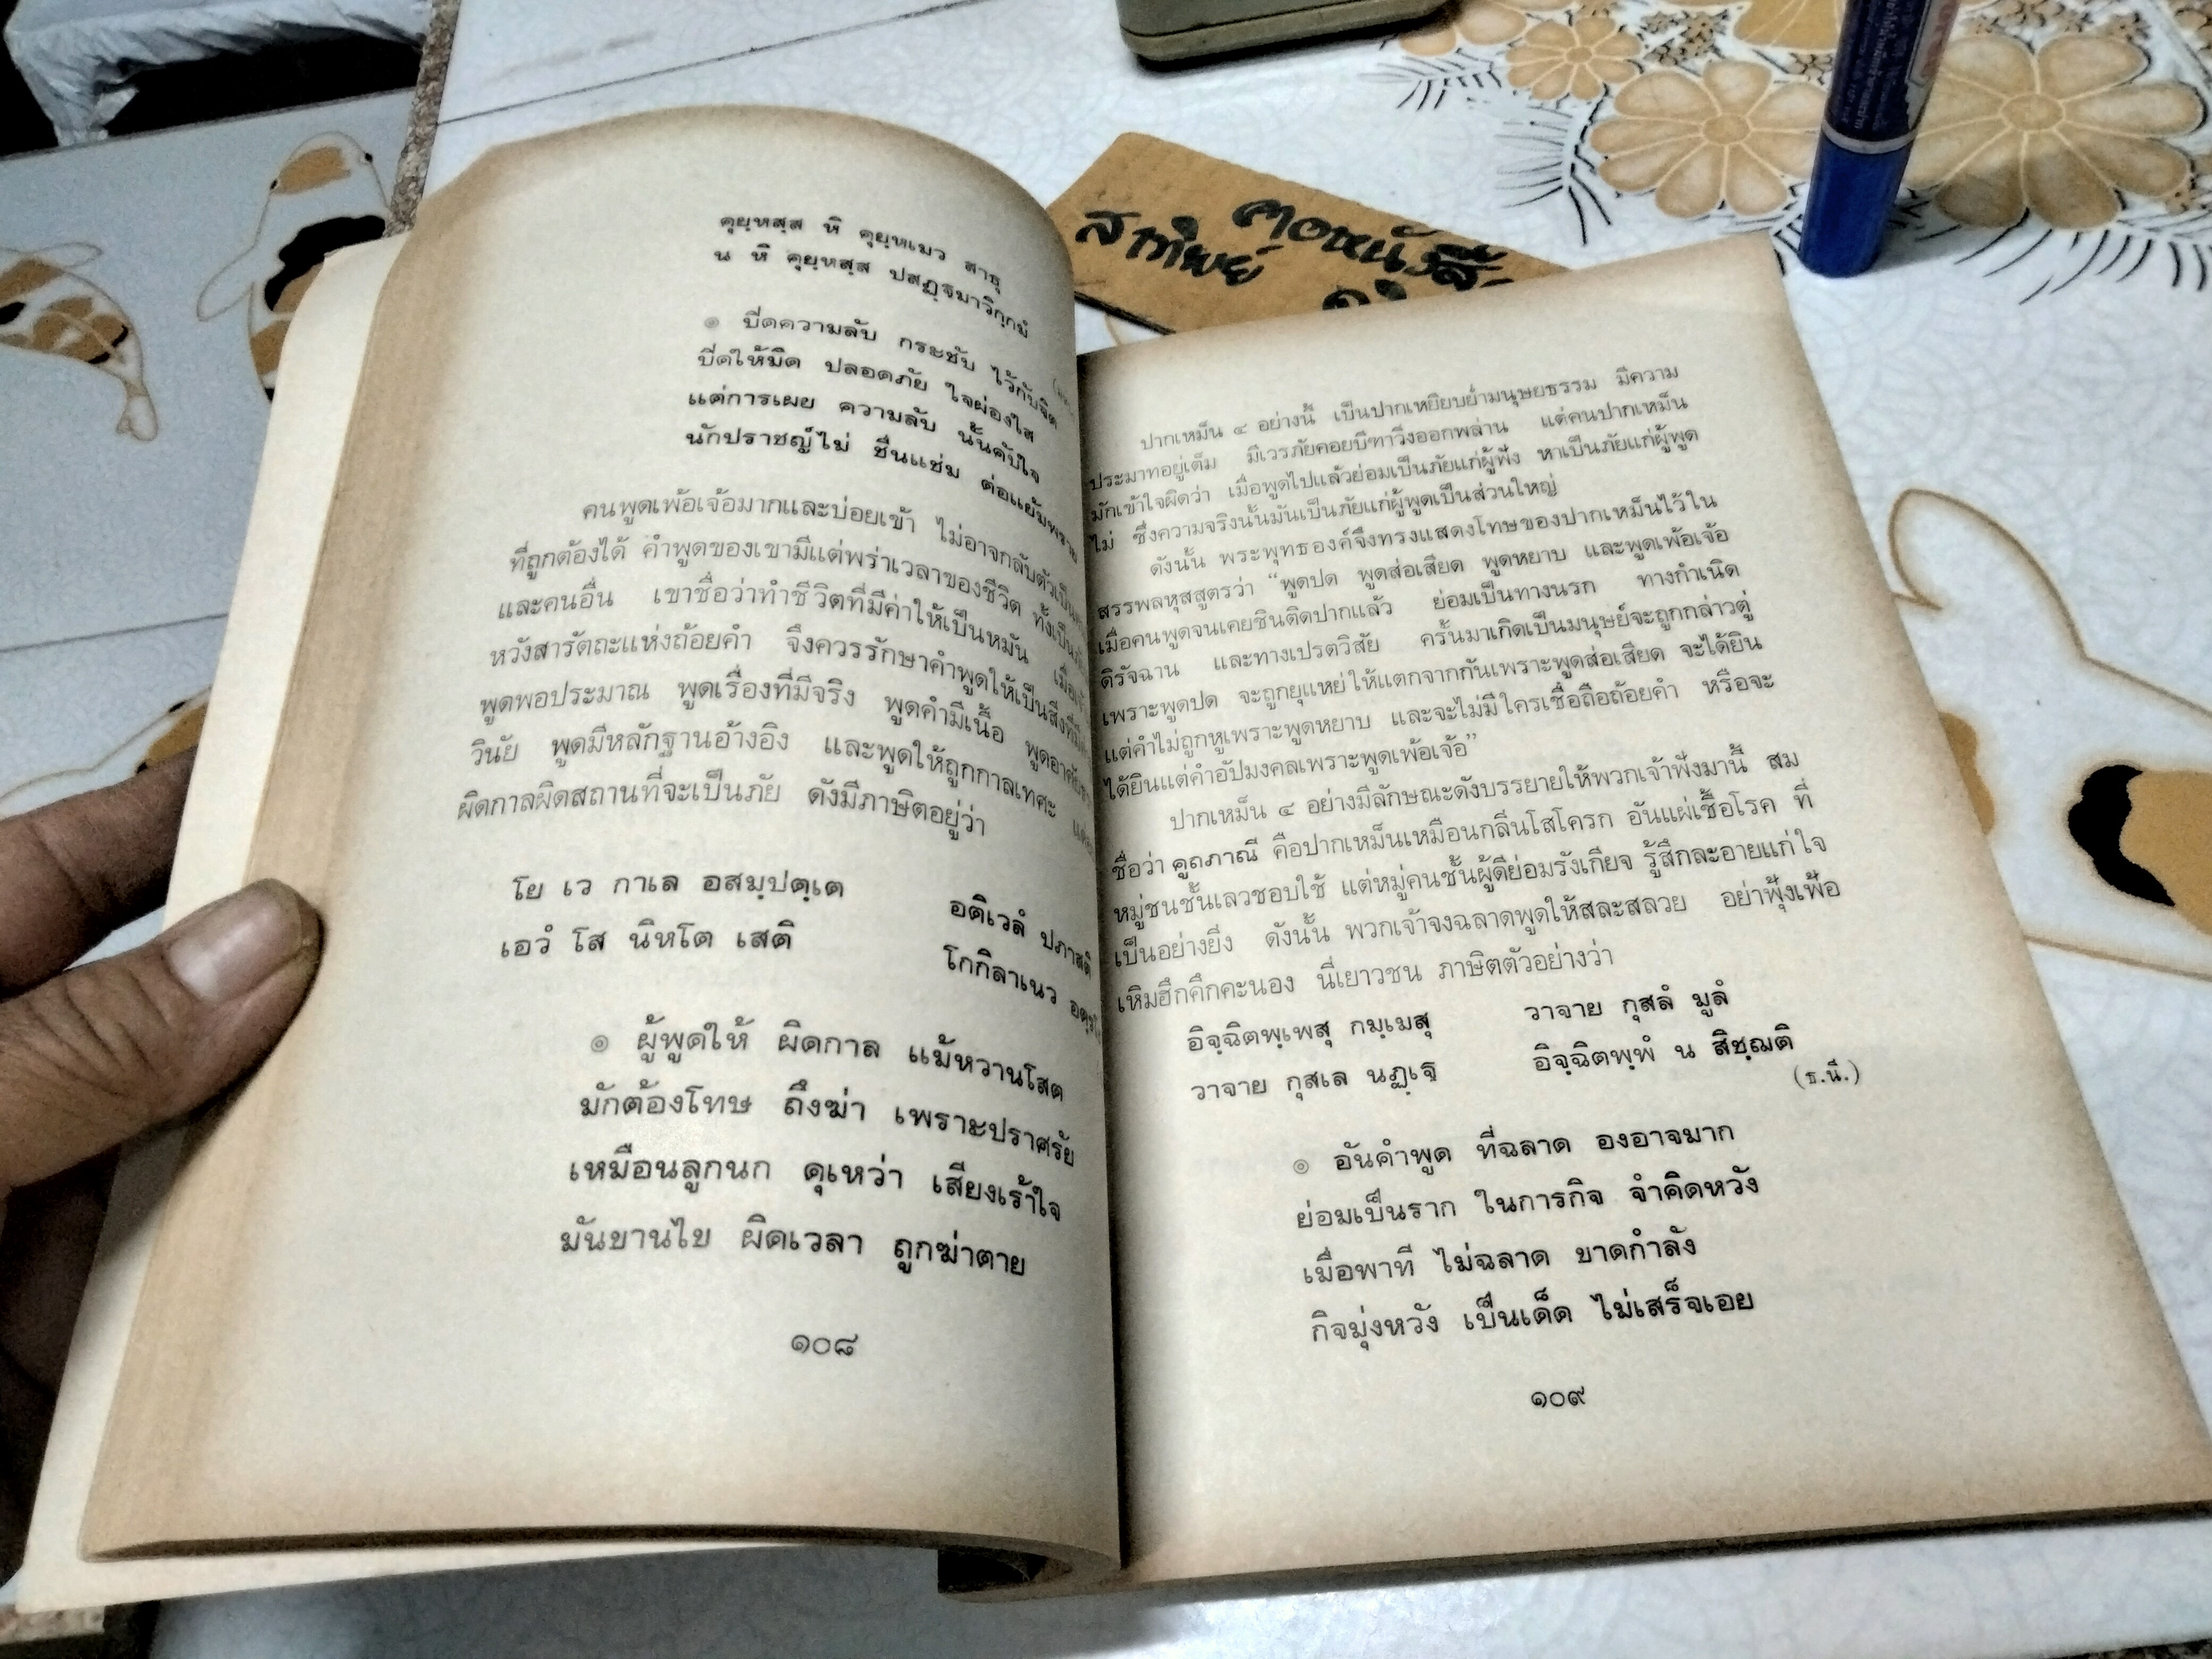 คุยฺหสฺส หิ คุยฺหเมว สาธุ
น หิ คุยฺหสฺส ปสฏฺฐมาวิกฺกมํ
๏ ปิดความลับ กระชับ ไว้กับจิต
ปิดให้มิด ปลอดภัย ใจผ่องใส
แต่การเผย ความลับ นั้นคับใจ
นักปราชญ์ไม่ ชื่นแช่ม ต่อแย้มพราย
คนพูดเพ้อเจ้อมากและบ่อยเข้า ไม่อาจกลับตัวเป็น
ที่ถูกต้องได้ คำพูดของเขามีแต่พร่าเวลาของชีวิต ทั้งเป็น
และคนอื่น เขาชื่อว่าทำชีวิตที่มีค่าให้เป็นหมัน
หวังสารัตถะแห่งถ้อยคำ จึงควรรักษาคำพูดให้เป็นสิ่งที่มี
พูดพอประมาณ พูดเรื่องที่มีจริง พูดคำมีเนื้อ
วินัย พูดมีหลักฐานอ้างอิง และพูดให้ถูกกาลเทศะ
ผิดกาลผิดสถานที่จะเป็นภัย ดังมีภาษิตอยู่ว่า
โย เว กาเล อสมฺปตฺเต อติเวลํ ปภาสติ
เอวํ โส นิหโต เสติ โกกิลาเนว
๏ ผู้พูดให้ ผิดกาล แม้หวานโสต
มักต้องโทษ ถึงฆ่า เพราะปราศรัย
เหมือนลูกนก ดุเหว่า เสียงเร้าใจ
มันขานไข ผิดเวลา ถูกฆ่าตาย
๑๐๘
สาทิพย์ คอหนังสือ
ปากเหม็น ๔ อย่างนี้ เป็นปากเหยียบย่ำมนุษยธรรม มีความ
ประมาทอยู่เต็ม มีเวรภัยคอยบีฑาวิ่งออกพล่าน แต่คนปากเหม็น
มักเข้าใจผิดว่า เมื่อพูดไปแล้วย่อมเป็นภัยแก่ผู้ฟัง หาเป็นภัยแก่ผู้พูด
ไม่ ซึ่งความจริงนั้นมันเป็นภัยแก่ผู้พูดเป็นส่วนใหญ่
ดังนั้น พระพุทธองค์จึงทรงแสดงโทษของปากเหม็นไว้ใน
สรรพลหุสสูตรว่า “พูดปด พูดส่อเสียด พูดหยาบ และพูดเพ้อเจ้อ
เมื่อคนพูดจนเคยชินติดปากแล้ว ย่อมเป็นทางนรก ทางกำเนิด
ดิรัจฉาน และทางเปรตวิสัย ครั้นมาเกิดเป็นมนุษย์จะถูกกล่าวตู่
เพราะพูดปด จะถูกยุแหย่ให้แตกจากกันเพราะพูดส่อเสียด จะได้ยิน
แต่คำไม่ถูกหูเพราะพูดหยาบ และจะไม่มีใครเชื่อถือถ้อยคำ หรือจะ
ได้ยินแต่คำอัปมงคลเพราะพูดเพ้อเจ้อ”
ปากเหม็น ๔ อย่างมีลักษณะดังบรรยายให้พวกเจ้าฟังมานี้ สม
ชื่อว่า คูถภาณี คือปากเหม็นเหมือนกลิ่นโสโครก อันแผ่เชื้อโรค ที่
หมู่ชนชั้นเลวชอบใช้ แต่หมู่คนชั้นผู้ดีย่อมรังเกียจ รู้สึกละอายแก่ใจ
เป็นอย่างยิ่ง ดังนั้น พวกเจ้าจงฉลาดพูดให้สละสลวย อย่าฟุ้งเฟ้อ
เหิมฮึกคึกคะนอง นี่เยาวชน ภาษิตตัวอย่างว่า
อิจฺฉิตพฺเพสุ กมฺเมสุ วาจาย กุสลํ มูลํ
วาจาย กุสเล นฏฺเฐ อิจฺฉิตพฺพํ น สิชฺฌติ
(ธ.นี.)
๏ อันคำพูด ที่ฉลาด องอาจมาก
ย่อมเป็นราก ในการกิจ จำคิดหวัง
เมื่อพาที ไม่ฉลาด ขาดกำลัง
กิจมุ่งหวัง เป็นเด็ด ไม่เสร็จเอย
๑๐๙